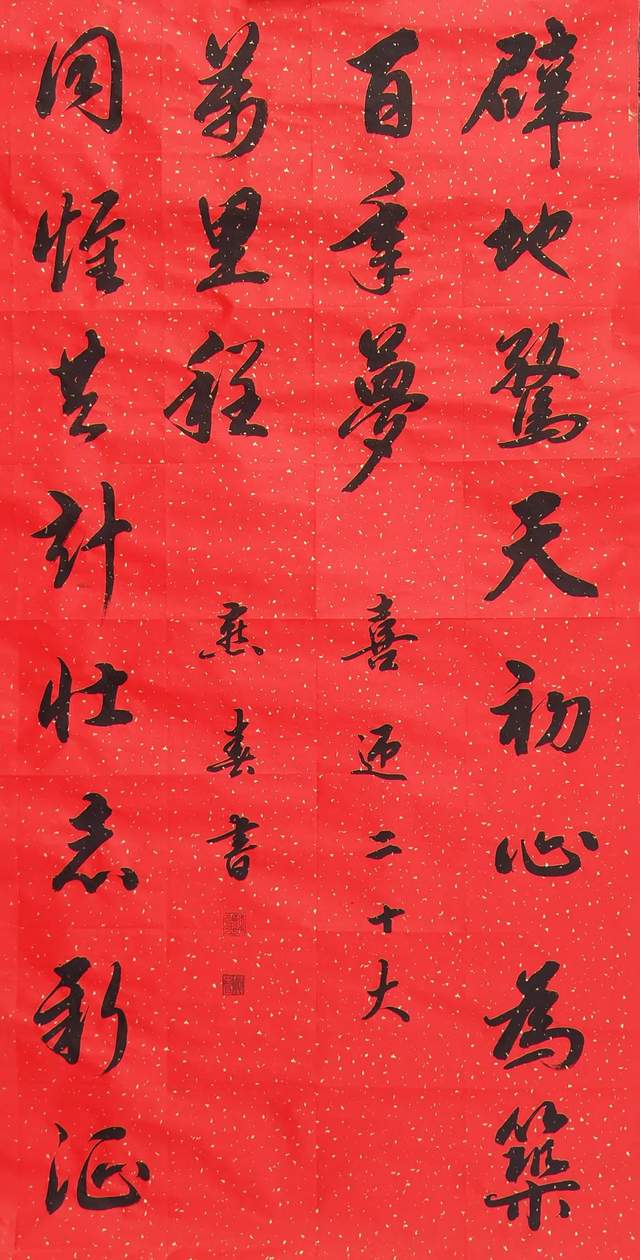 辟地驚天初心為築
百年夢
喜迎二十大
同惟共計壯志新征
萬里程
春書